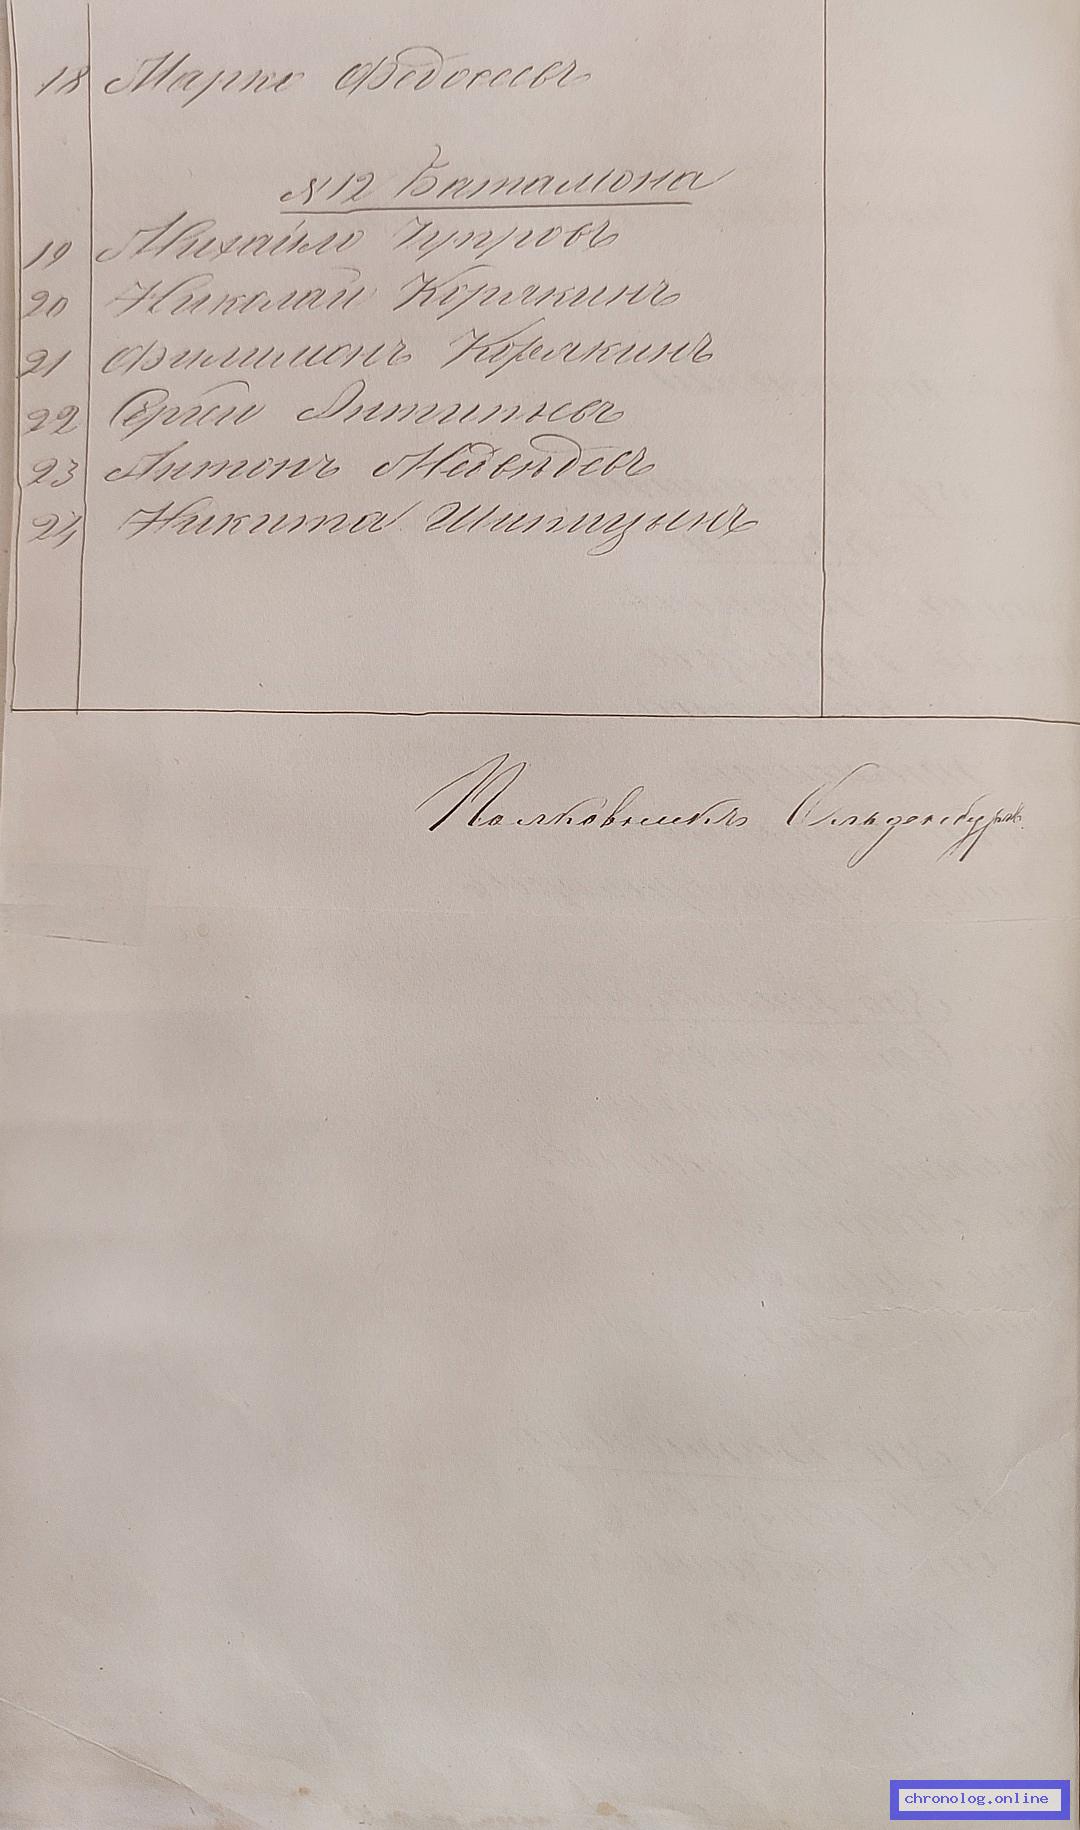 18 Марко Федосеевъ
№12 Баталиона
19 Михайло Чупровъ
20 Николай Корякинъ
21 Филимонъ Корякинъ
22 Сергей Антипьевъ
23 Антонъ Медвѣдевъ
24 Никита Шипицынъ
Полковникъ
chronolog.online